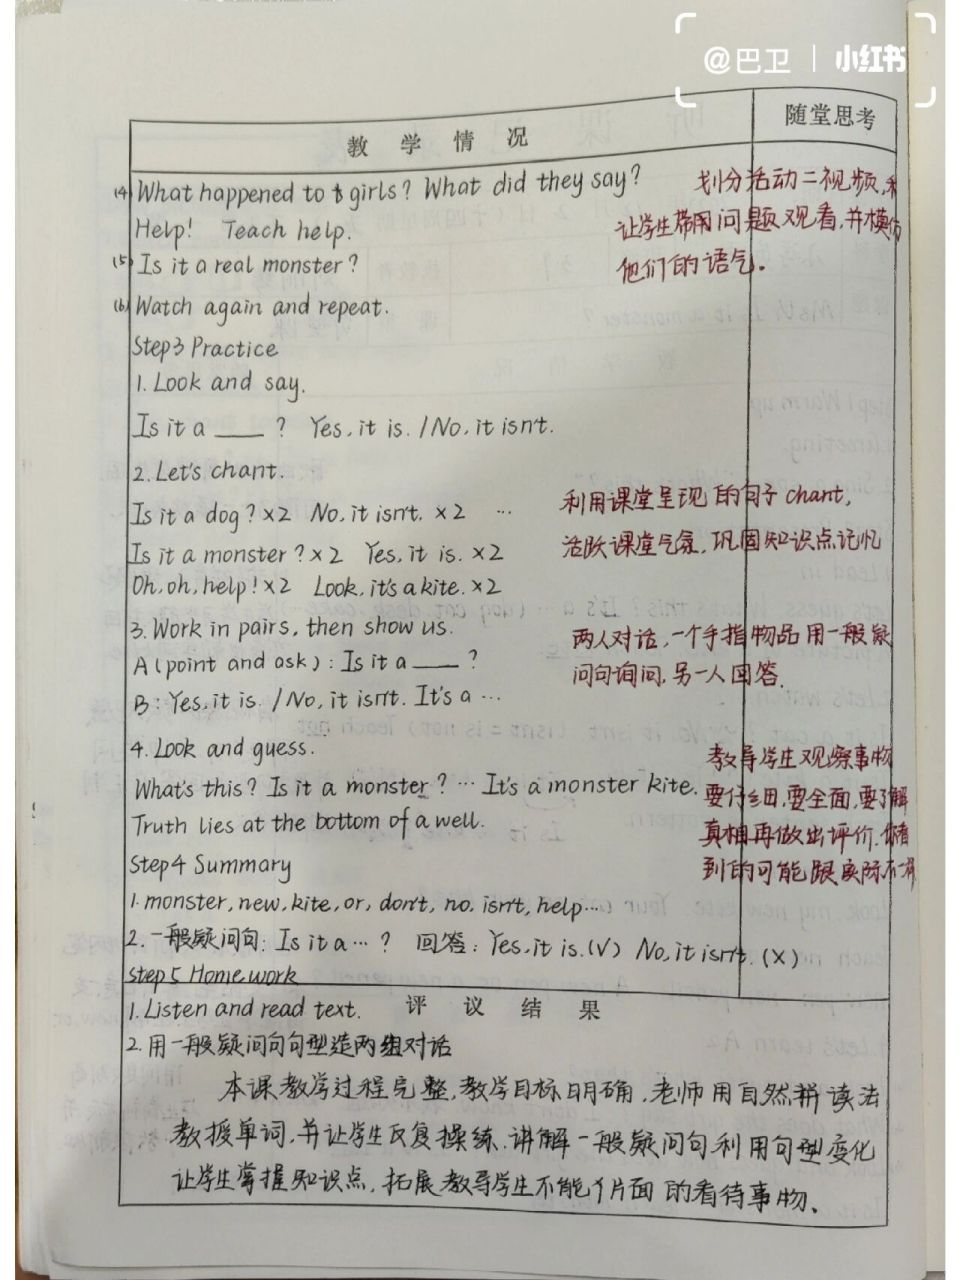 @巴卫 | 小红书
教 学 情 况
随堂思考
(4) What happened to girls? What did they say?
Help! Teach help.
(5) Is it a real monster?
(6) Watch again and repeat.
划分活动二视频,
让学生带着问题观看,并模仿
他们的语气。
Step3 Practice
1. Look and say.
Is it a ____ ? Yes, it is. / No, it isn't.
2. Let's chant.
Is it a dog? ×2 No, it isn't. ×2 …
Is it a monster? ×2 Yes, it is. ×2
Oh, oh, help! ×2 Look, it's a kite. ×2
利用课堂呈现的句子 chant,
活跃课堂气氛,巩固知识点记忆
3. Work in pairs, then show us.
A (point and ask): Is it a ____ ?
B: Yes, it is. / No, it isn't. It's a …
两人对话,一个手指物品用一般疑
问句询问,另一人回答.
4. Look and guess.
What's this? Is it a monster? … It's a monster kite.
Truth lies at the bottom of a well.
教导学生观察事物
要仔细,要全面,要了解
真相再做出评价.你看
到的可能跟实际不一样
Step4 Summary
1. monster, new, kite, or, don't, no, isn't, help…
2. 一般疑问句: Is it a … ? 回答: Yes, it is. (√) No, it isn't. (×)
step5 Homework
1. Listen and read text.
评 议 结 果
2. 用一般疑问句句型造两组对话
本课教学过程完整,教学目标明确,老师用自然拼读法
教授单词,并让学生反复操练.讲解一般疑问句利用句型变化
让学生掌握知识点,拓展教导学生不能片面的看待事物。